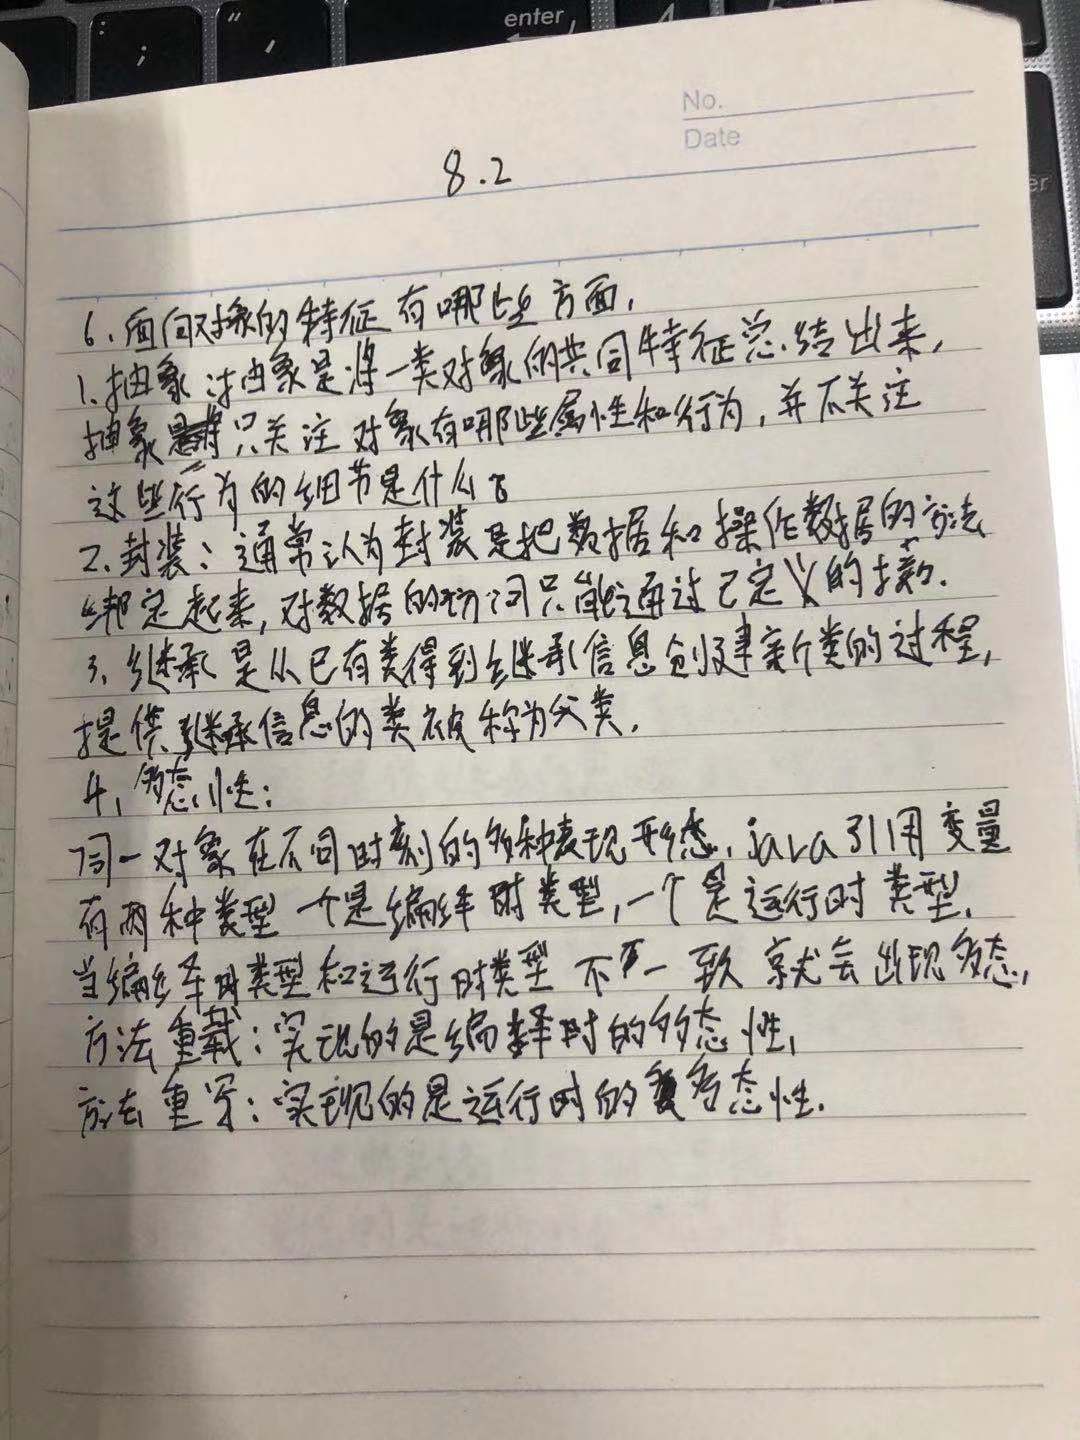 enter
No.
Date
8.2
6.面向对象的特征有哪些方面.
1.抽象:抽象是将一类对象的共同特征总结出来,
抽象只关注对象有哪些属性和行为,并不关注
这些行为的细节是什么。
2.封装:通常认为封装是把数据和操作数据的方法
绑定起来,对数据的访问只能通过已定义的接口.
3.继承是从已有类得到继承信息创建新类的过程,
提供继承信息的类被称为父类.
4.多态性:
同一对象在不同时刻的多种表现形态.java引用变量
有两种类型 一个是编译时类型,一个是运行时类型.
当编译时类型和运行时类型 不一致 就会出现多态,
方法重载:实现的是编译时的多态性,
方法重写:实现的是运行时的多态性.